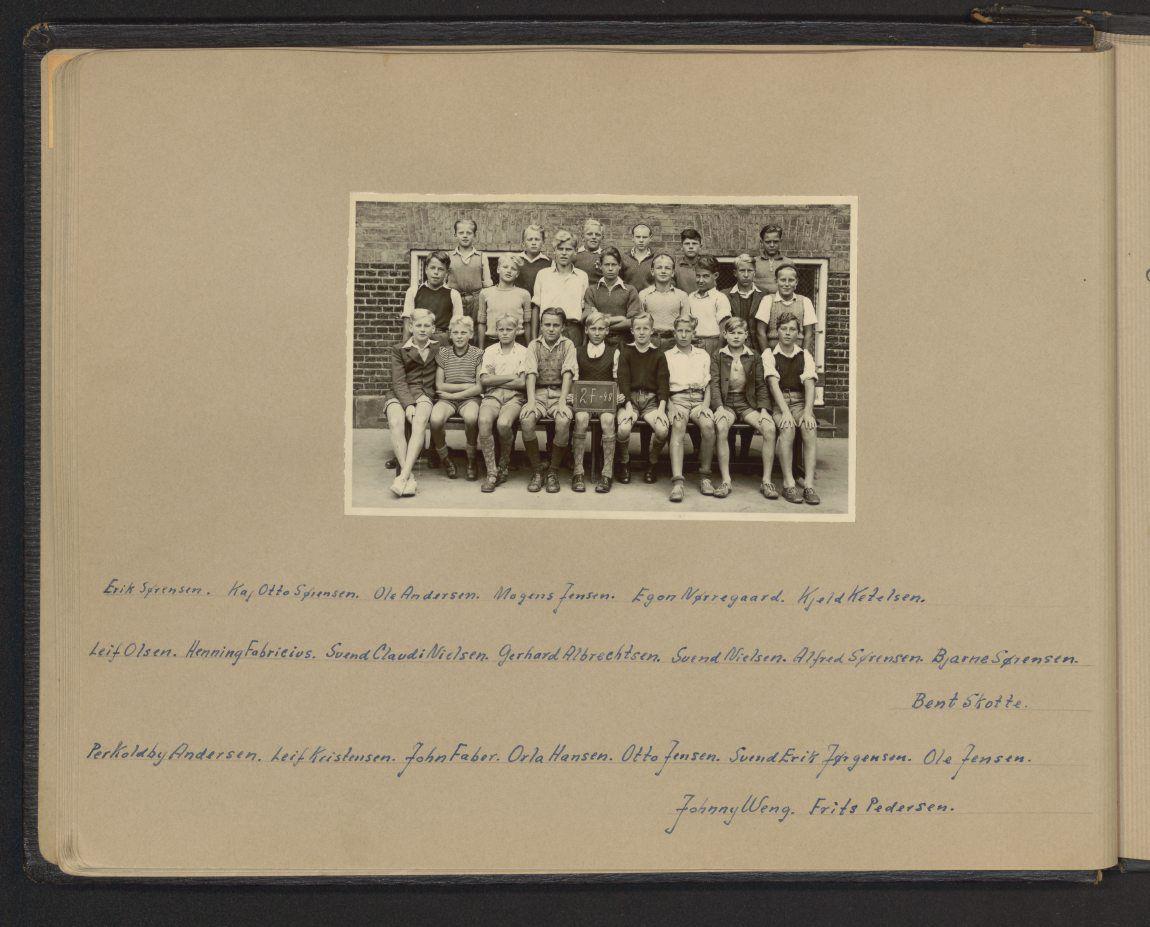 2F-48
Erik Sørensen. Kaj Otto Sørensen. Ole Andersen. Mogens Jensen. Egon Nørregaard. Kjeld Ketelsen.
Leif Olsen. Henning Fabricius. Svend Claudi Nielsen. Gerhard Albrechtsen. Svend Nielsen. Alfred Sørensen. Bjarne Sørensen.
Bent Skotte.
Per Koldby Andersen. Leif Kristensen. John Faber. Orla Hansen. Otto Jensen. Svend Erik Jørgensen. Ole Jensen.
Johnny Weng. Frits Pedersen.